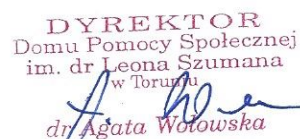 DYREKTOR
Domu Pomocy Społecznej
im. dr Leona Szumana
w Toruniu
dr Agata Wołowska